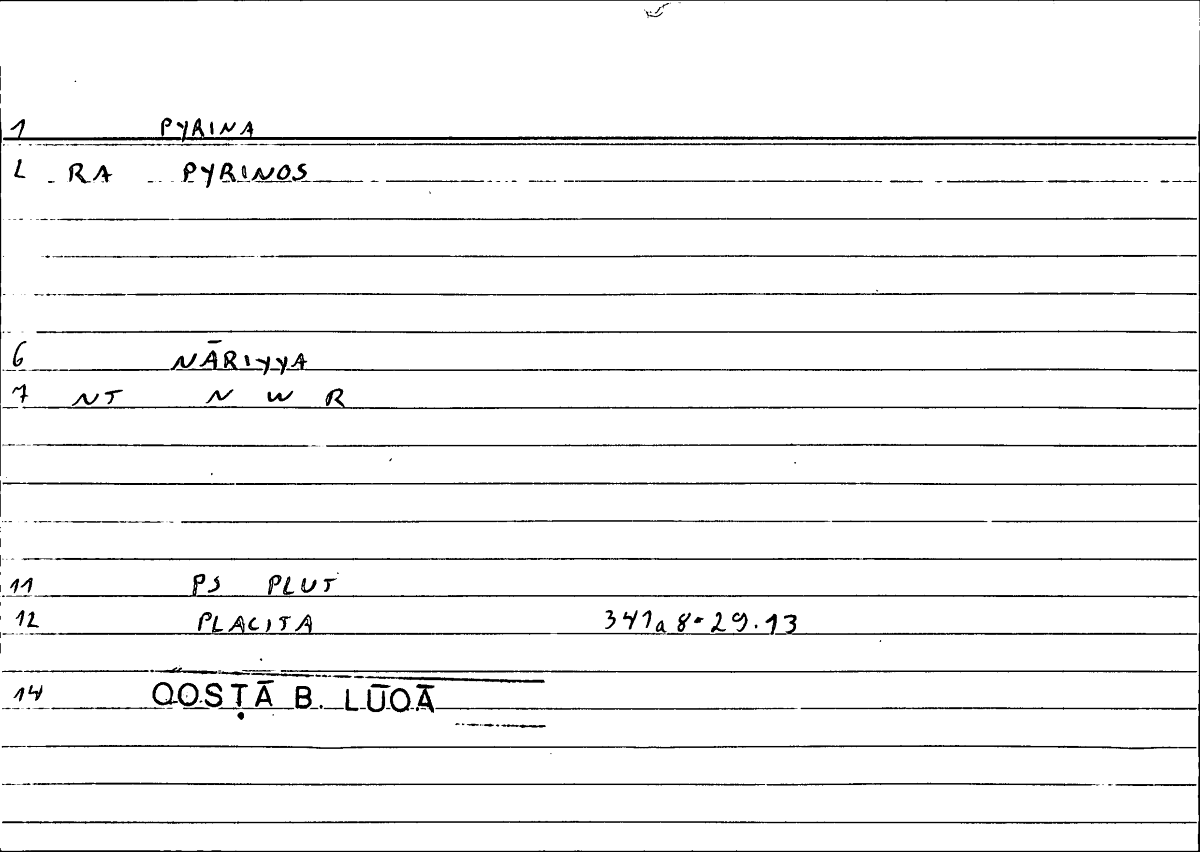 1 PYRINA
2 RA PYRINOS
6 NĀRIYYA
7 NT N W R
11 PS PLUT
12 PLACITA 341a8-29.13
14 QOSṬĀ B. LŪQĀ